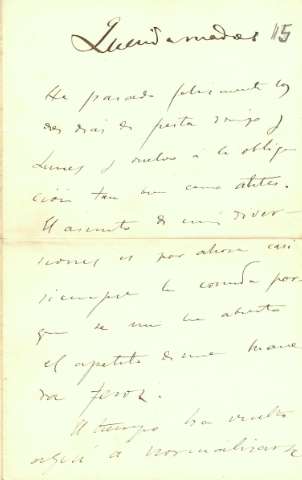 Querida madre 115
He pasado felizmente los
dos dias de fiesta Domingo y
Lunes y vuelvo á la obliga
ción tan  como antes.
El asunto de mis diver-
siones es por ahora casi
siempre la comida por-
que se me ha abierto
el apetito de una mane
ra feroz.
El tiempo ha vuelto
 á normalizarse